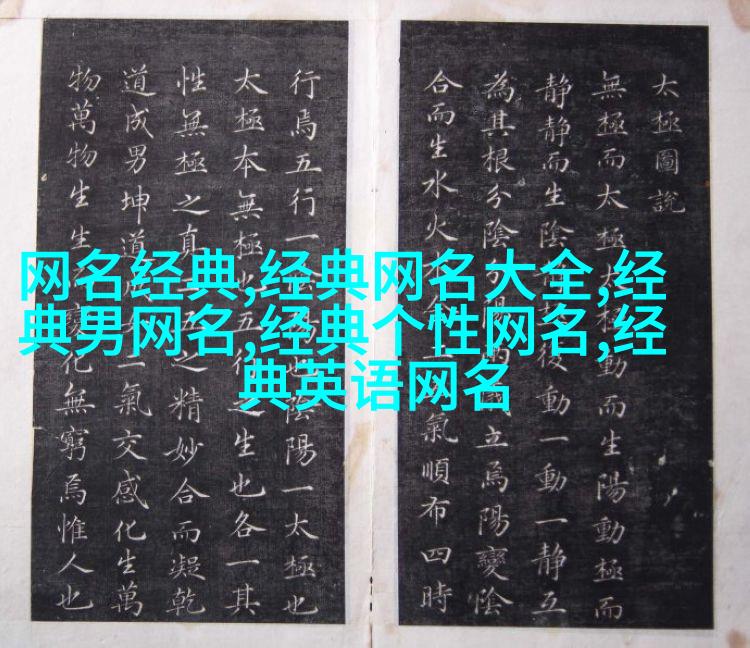 网名经典,经典网名大全,经
典男网名,经典个性网名,经
典英语网名
太極圖說
無極而太極太極動而生陽動極而
静静而生陰静極後動一動一静互
為其根分陰分陽兩儀立焉陽變陰
合而生水火木金土五氣順布四時
行焉五行一陰陽也陰陽一太極也
太極本無極也五行之生也各一其
性無極之真二五之精妙合而凝乾
道成男坤道成女二氣交感化生萬
物萬物生生而變化無窮焉惟人也